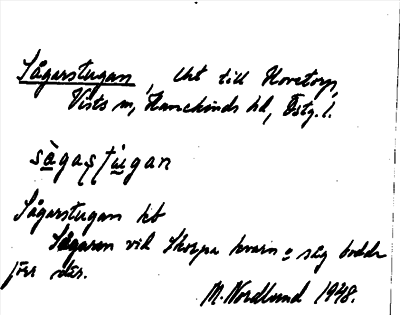 Sågarstugan, lht till Hovetorp,
Vists sn, Hanekinds hd, Östg. l.
sågaʂtugan
Sågarstugan hb
Sågaren vid Skorpa kvarn o såg bodde
förr där.
M. Nordlund 1948.